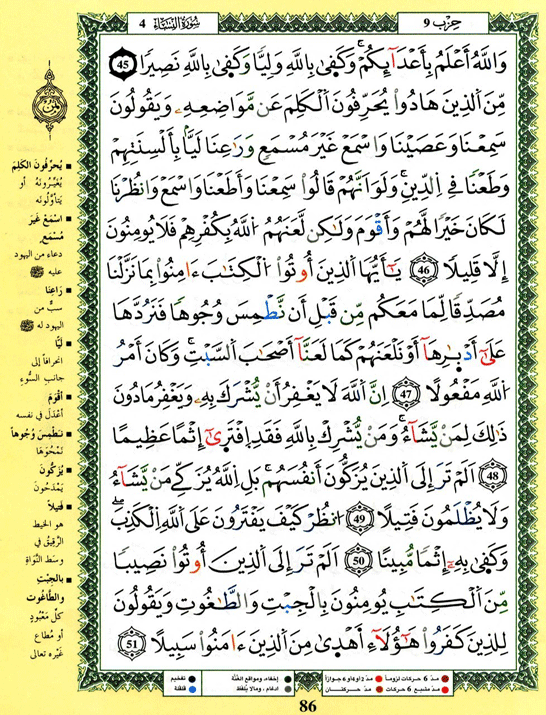 سُورَةُ النِّسَاءِ 4
حِزْب 9
وَاللَّهُ أَعْلَمُ بِأَعْدَآئِكُمْ ۚ وَكَفَىٰ بِاللَّهِ وَلِيًّا وَكَفَىٰ بِاللَّهِ نَصِيرًا 45
مِّنَ الَّذِينَ هَادُوا يُحَرِّفُونَ الْكَلِمَ عَن مَّوَاضِعِهِ وَيَقُولُونَ
سَمِعْنَا وَعَصَيْنَا وَاسْمَعْ غَيْرَ مُسْمَعٍ وَرَاعِنَا لَيًّا بِأَلْسِنَتِهِمْ
وَطَعْنًا فِي الدِّينِ ۚ وَلَوْ أَنَّهُمْ قَالُوا سَمِعْنَا وَأَطَعْنَا وَاسْمَعْ وَانظُرْنَا
لَكَانَ خَيْرًا لَّهُمْ وَأَقْوَمَ وَلَٰكِن لَّعَنَهُمُ اللَّهُ بِكُفْرِهِمْ فَلَا يُؤْمِنُونَ
إِلَّا قَلِيلًا 46 يَٰٓأَيُّهَا الَّذِينَ أُوتُوا الْكِتَٰبَ ءَامِنُوا بِمَا نَزَّلْنَا
مُصَدِّقًا لِّمَا مَعَكُم مِّن قَبْلِ أَن نَّطْمِسَ وُجُوهًا فَنَرُدَّهَا
عَلَىٰٓ أَدْبَارِهَآ أَوْ نَلْعَنَهُمْ كَمَا لَعَنَّآ أَصْحَٰبَ السَّبْتِ ۚ وَكَانَ أَمْرُ
اللَّهِ مَفْعُولًا 47 إِنَّ اللَّهَ لَا يَغْفِرُ أَن يُشْرَكَ بِهِ وَيَغْفِرُ مَا دُونَ
ذَٰلِكَ لِمَن يَشَآءُ ۚ وَمَن يُشْرِكْ بِاللَّهِ فَقَدِ افْتَرَىٰٓ إِثْمًا عَظِيمًا
48 أَلَمْ تَرَ إِلَى الَّذِينَ يُزَكُّونَ أَنفُسَهُم ۚ بَلِ اللَّهُ يُزَكِّي مَن يَشَآءُ
وَلَا يُظْلَمُونَ فَتِيلًا 49 انظُرْ كَيْفَ يَفْتَرُونَ عَلَى اللَّهِ الْكَذِبَ ۖ
وَكَفَىٰ بِهِ إِثْمًا مُّبِينًا 50 أَلَمْ تَرَ إِلَى الَّذِينَ أُوتُوا نَصِيبًا
مِّنَ الْكِتَٰبِ يُؤْمِنُونَ بِالْجِبْتِ وَالطَّٰغُوتِ وَيَقُولُونَ
لِلَّذِينَ كَفَرُوا هَٰٓؤُلَآءِ أَهْدَىٰ مِنَ الَّذِينَ ءَامَنُوا سَبِيلًا 51
ثُمُن
يُحَرِّفُونَ الكَلِمَ
يُغَيِّرُونَهُ أو
يَتَأوَّلُونَه
اسْمَعْ غَيرَ
مُسْمَعٍ
دعاء من اليهود
عليه ﷺ
رَاعِنَا
سبٌّ من
اليهود له ﷺ
لَيًّا
انحرافاً إلى
جانب السُّوءِ
أَقْوَمَ
أعْدَلَ في نفسه
نَطْمِسَ وُجُوهاً
نَمْحُوَهَا
يُزَكُّونَ
يَمْدَحُونَ
فَتِيلاً
هو الخيط
الرَّقِيق في
وسَط النَّوَاة
بِالجِبْتِ
والطَّاغُوت
كلِّ مَعْبُودٍ
أو مُطاع
غَيْره تعالى
مدّ 6 حركات لزوماً
مدّ 2 أو 4 أو 6 جوازاً
إخفاء، ومواقع الغُنَّة
تفخيم
مدّ مشبع 6 حركات
مدّ حركتان
ادغام، وما لا يُلفَظ
قلقلة
86